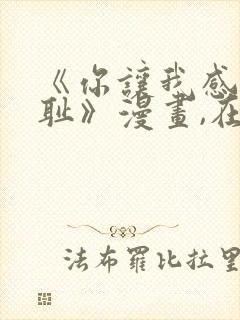 《你讓我感
耻》漫畫,在
法布羅比拉里